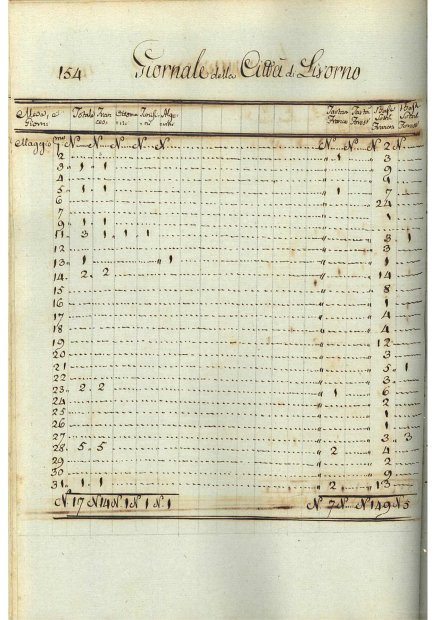 154 Giornale della Città di Livorno
Mese, e Giorni Totale Fran cesi Ottoma ni Tunisi ni Alge rini Tartan Francesi Tarta Forest
Maggio 1 N. N. N. N. N. N. N. N. 2 N.
2 " 1 " 3
3 " 1 " 1 " " 9
4 " " 9
5 " 1 " 1 " 1 " 7
6 " " 24
7 " " 1
9 " 1 " 1 " " 1
11 " 3 " 1 " 1 " 1 " " 8 " 1
12 " " 3
13 " 1 " 1 " " 1
14 " 2 " 2 " " 14
15 " " 8
16 " " 1
17 " " 4
18 " " 4
19 " " 12
20 " " 3
21 " " 5 " 1
22 " " 3
23 " 2 " 2 " 1 " 6
24 " " 2
25 " " 1
26 " " 1
27 " " 3 " 3
28 " 5 " 5 " 2 " 4
29 " " 2
30 " " 9
31 " 1 " 1 " 2 " 13
N. 17 N. 14 N. 1 N. 1 N. 1 N. 7 N. N. 149 N. 5